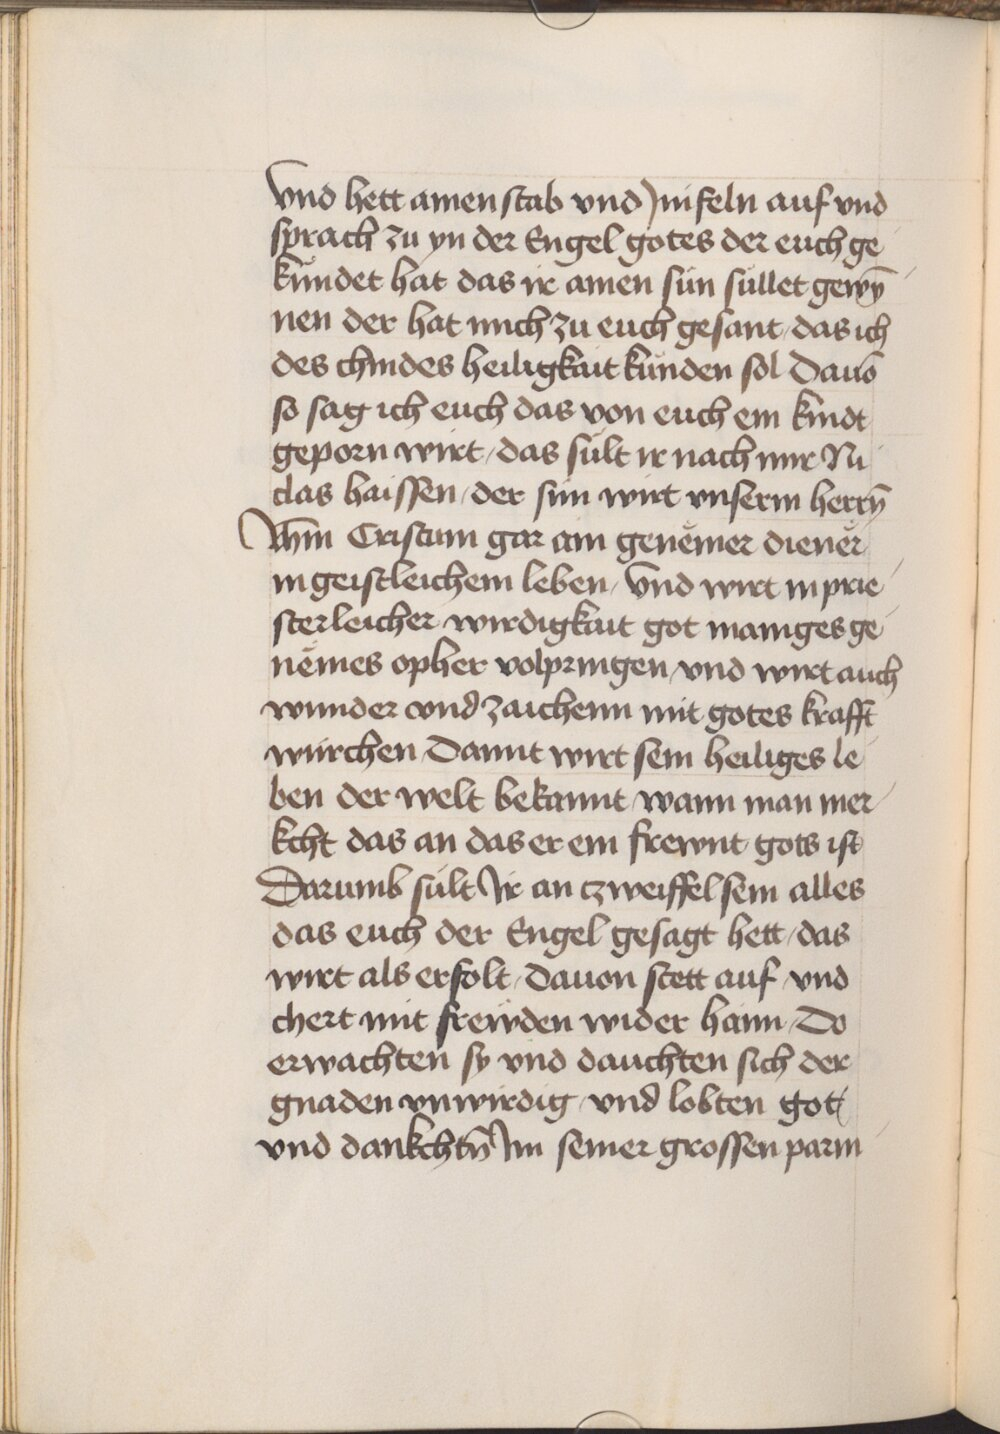 Vnd hett ainen stab vnd Infeln auf vnd
sprach zu yn der Engel gotes der euch ge
kündet hat das ir ainen sün süllet gewȳ
nen der hat mich zu euch gesant / das ich
des chindes heiligkait künden sol Dauō
so sag ich euch das von euch ein kindt
geporn wirt / das sült ir nach mir Ni
clas haissen / der sün wirt vnserm herrn̄
Jhm̄ Cristum gar ain genemer diener
in geistleichem leben / Vnd wirt in prie
sterleicher wirdigkait got maniges ge
nemes opher volpringen / vnd wirt auch
wunder vnd zaichenn mit gotes krafft
würchen / Damit wirt sein heiliges le
ben der welt bekannt / wann man mer
kcht das an das er ein frewnt gots ist
Darumb sült Ir an czweiffel sein alles
das euch der Engel gesagt hett / das
wirt als erfolt / dauon stett auf / vnd
chert mit frewden wider haim / Do
erwachten sy vnd dauchten sich der
gnaden vnwirdig / vnd lobten got /
vnd dankchtn̄ Im seiner grossen parm